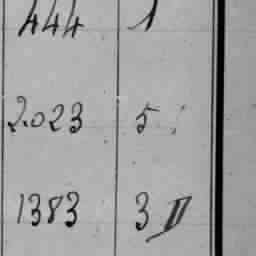 444 1
2.023 5
1383 3